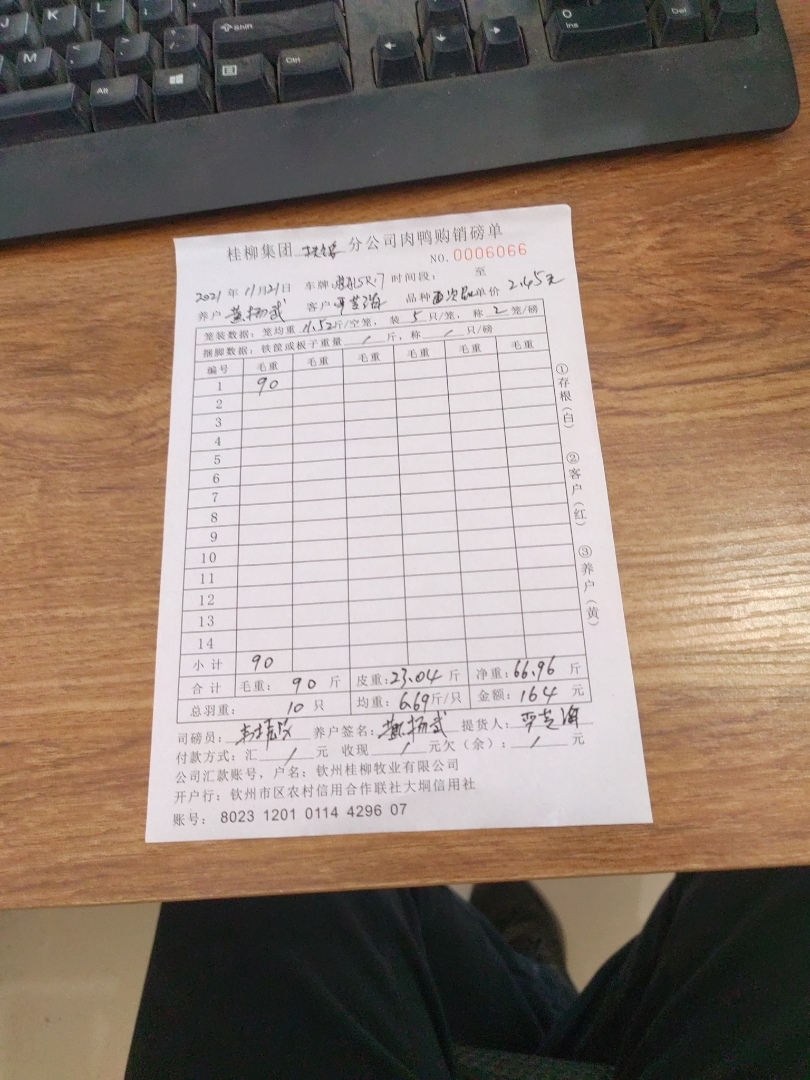 K L : " Shift 0 Ins Del
J
M < > ? Alt Ctrl ← ↓ →
桂柳集团 分公司肉鸭购销磅单
NO. 0006066
2021 年 11月21日 车牌 时间段: 至
养户 黄扬武 客户 品种 单价 2.45元
笼装数据: 笼均重 11.52斤/空笼、 装 5 只/笼, 称 2 笼/磅
捆脚数据: 铁筐或板子重量 / 斤, 称 / 只/磅
编号 毛重 毛重 毛重 毛重 毛重 毛重
1 90
2
3
4
5
6
7
8
9
10
11
12
13
14
小计 90
合计 毛重: 90 斤 皮重: 23.04 斤 净重: 66.96 斤
总羽重: 10 只 均重: 6.69斤/只 金额: 164 元
司磅员: 养户签名: 黄扬武 提货人:
付款方式: 汇 / 元 收现 / 元欠(余): / 元
公司汇款账号, 户名: 钦州桂柳牧业有限公司
开户行: 钦州市区农村信用合作联社大垌信用社
账号: 8023 1201 0114 4296 07
①存根(白)
②客户(红)
③养户(黄)